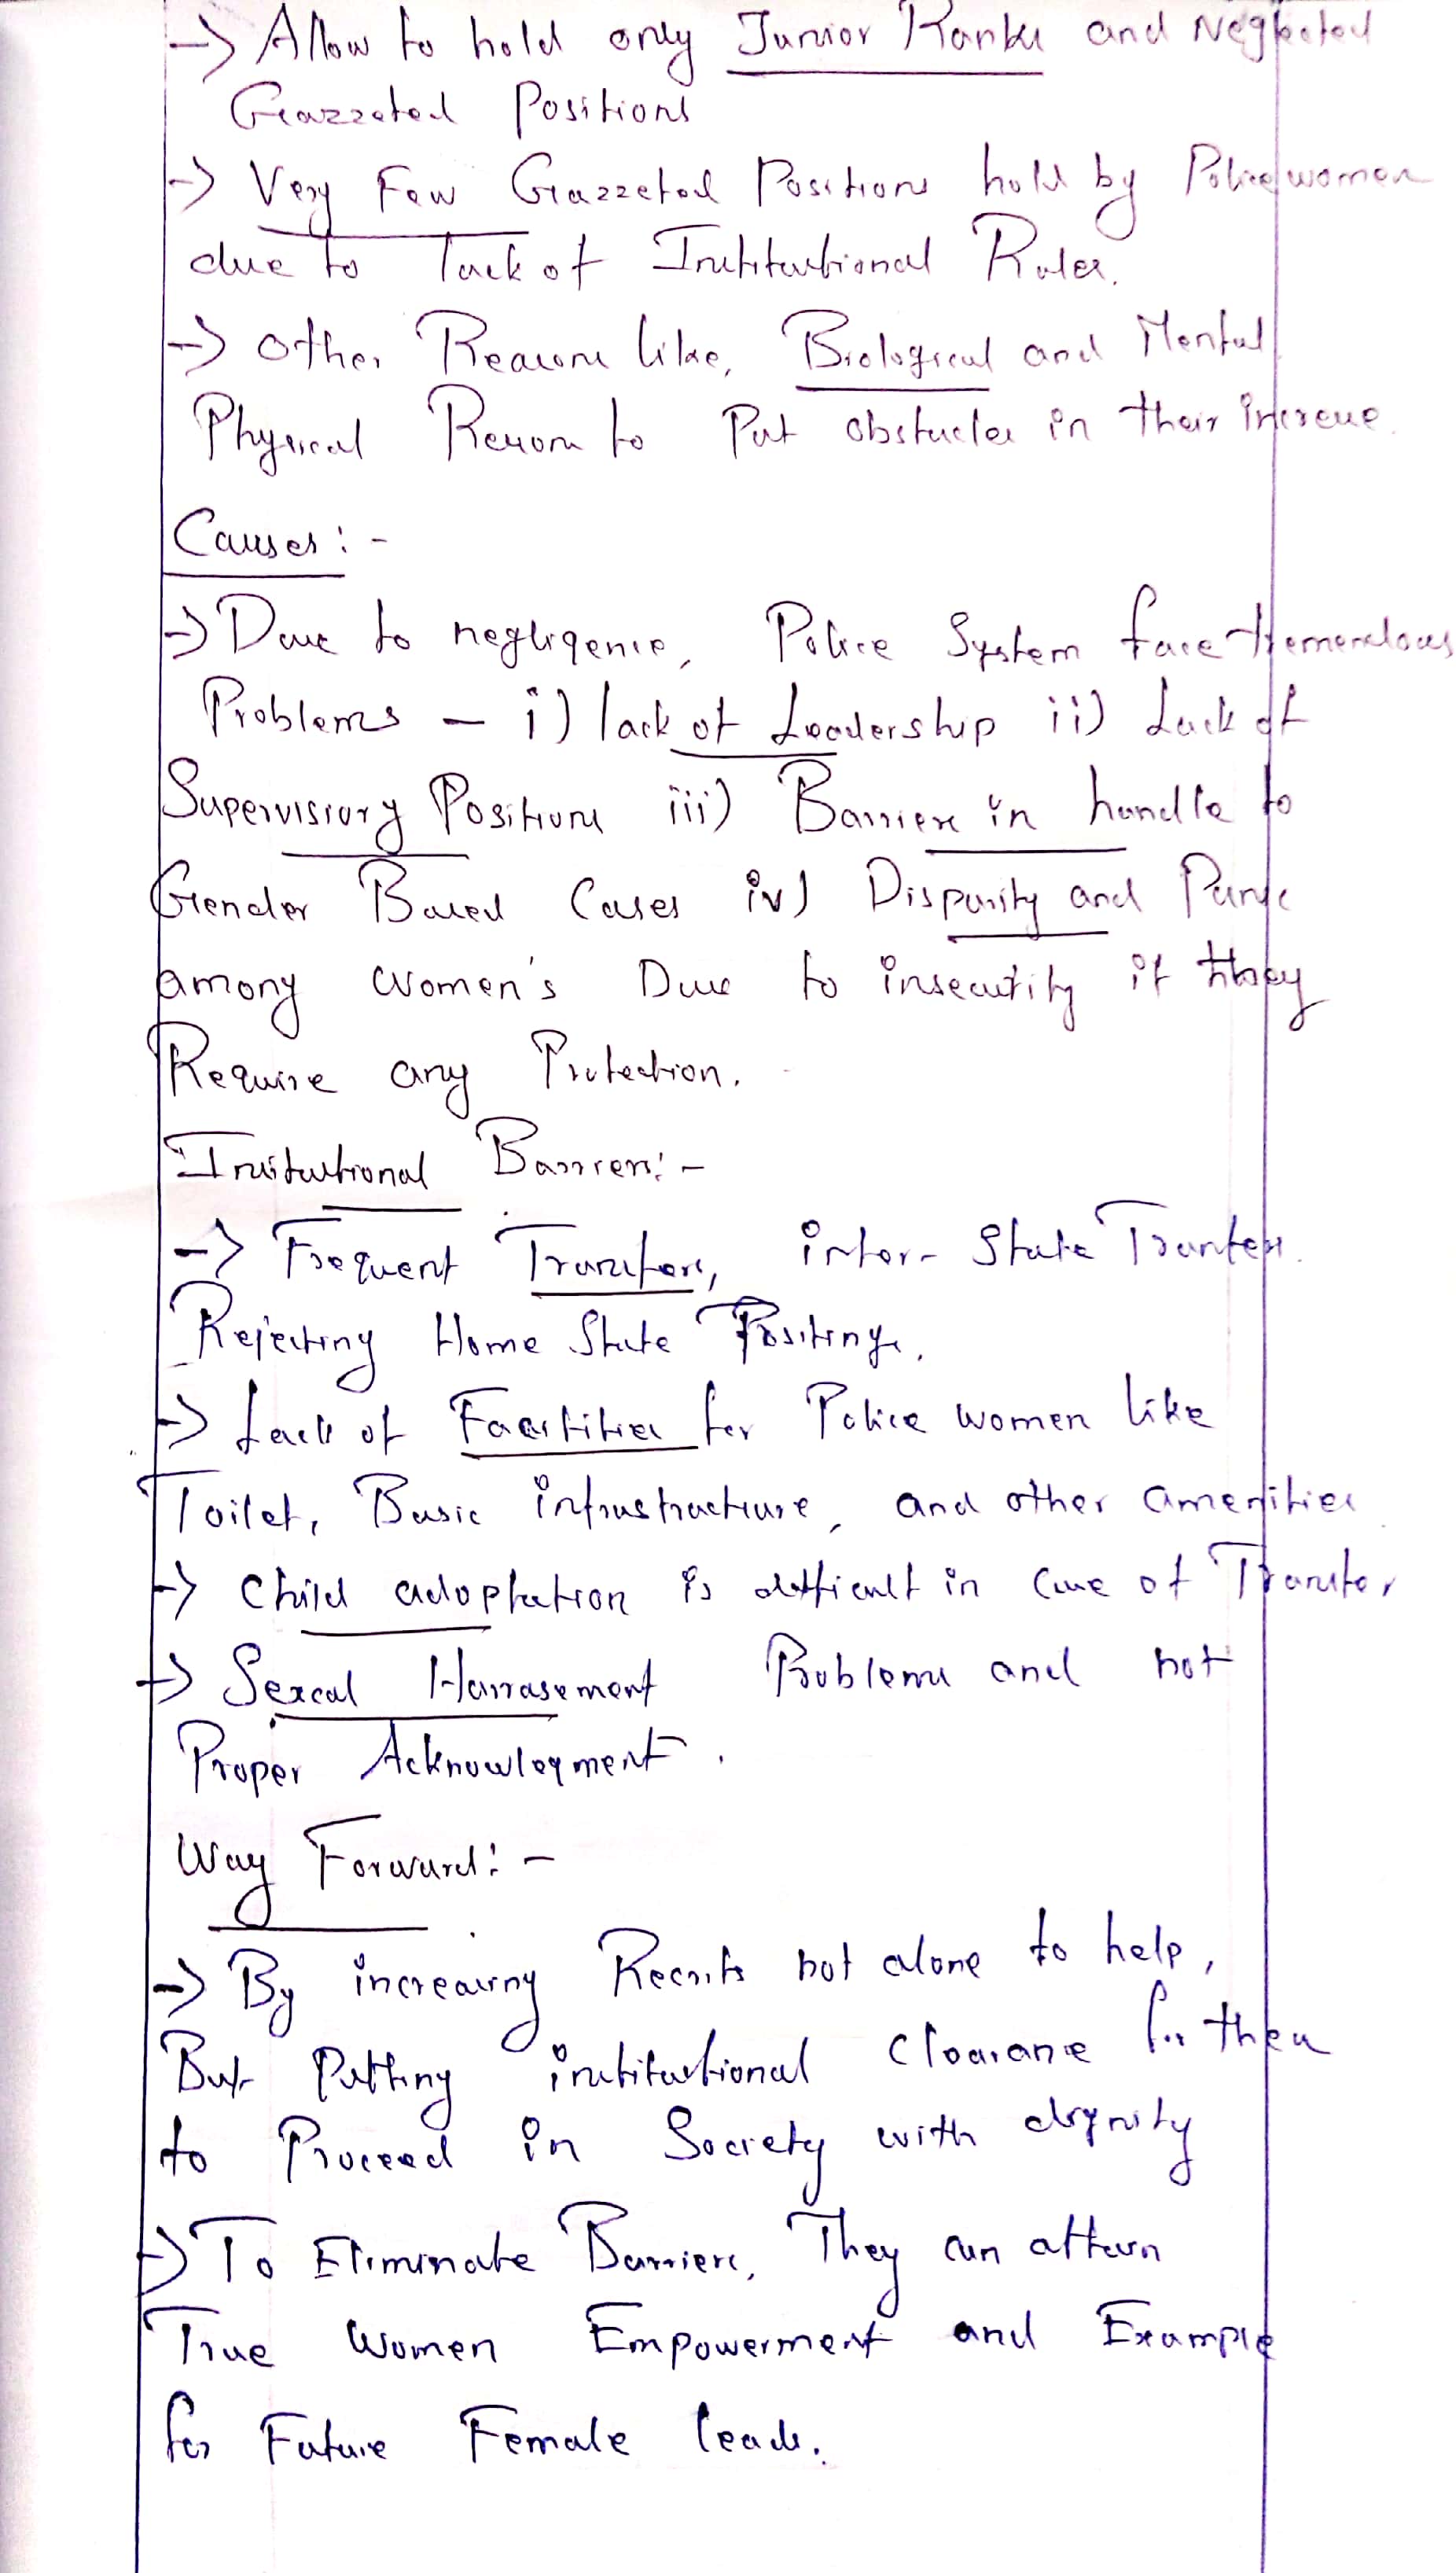 -> Allow to hold only Junior Ranks and Neglected
Gazzeted Positions
-> Very Few Gazzeted Positions hold by Policewomen
due to lack of Institutional Rules.
-> Other Reasons like, Biological and Mental
Physical Reasons to Put obstacles in their
Causes: -
-> Due to negligence, Police System face tremendous
Problems - i) lack of Leadership ii) Lack of
Supervisiory Positions iii) Barriers in handle to
Gender Based Cases iv) Disparity and Panic
among women's Due to insecurity if they
Require any Protection.
Institutional Barriers: -
-> Frequent Transfers, inter-State Transfers.
Rejecting Home State Postings.
-> Lack of Facilities for Police women like
Toilet, Basic infrastructure, and other amenities
-> Child adoptation is difficult in Case of Transfer
-> Sexual Harrasement Problems and not
Proper Acknowlegment.
Way Forward: -
-> By increasing Recruits not alone to help,
But Putting institutional Clearance for them
to Proceed in Society with dignity
-> To Eliminate Barriers, They can attain
True Women Empowerment and Example
for Future Female leads.